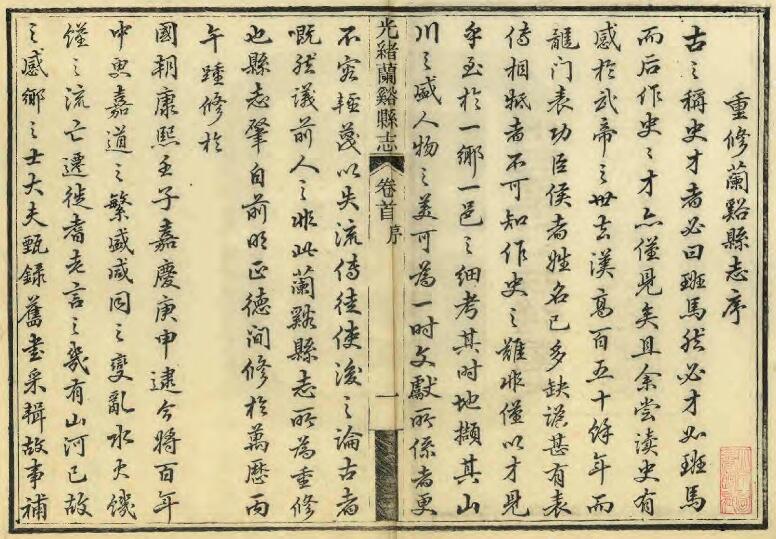 重修蘭谿縣志序
古之稱史才者必曰班馬然必才如班馬
而后作史之才亦僅見矣且余尝读史有
感於武帝之世去漢高百五十餘年而
龍门表功臣侯者姓名已多缺譌甚有表
傳相牴者不可知作史之難非僅以才見
乎至於一鄉一邑之细考其时地擷其山
川之盛人物之美可為一时文獻所係者更
光緒蘭谿縣志
卷首
序
一
不容輕蔑以失流傳徒使後之論古者
嘅然議前人之非此蘭谿縣志所為重修
也縣志肇自前明正德间修於萬歷丙
午踵修於
國朝康熙壬子嘉慶庚申逮今將百年
中更嘉道之繁盛咸同之變亂水火饑
馑之流亡遷徙耆老言之幾有山河已故
之感鄉之士大夫甄錄舊聿采輯故事補